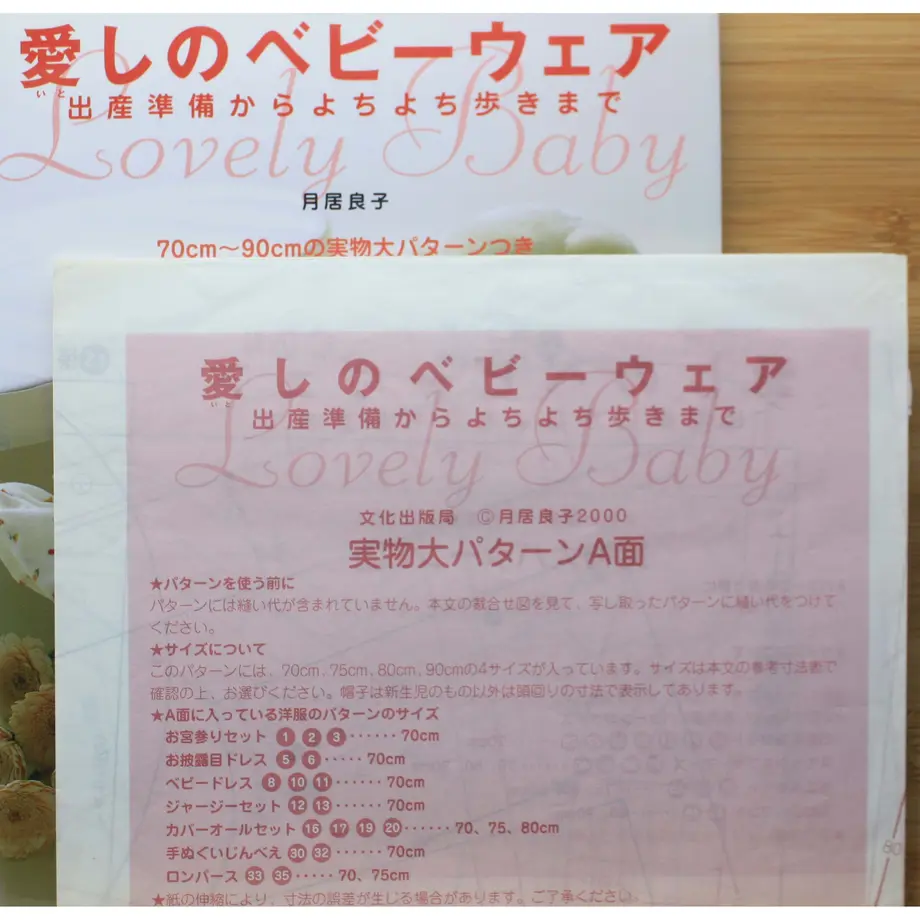 愛しのベビーウェア
いと
出産準備からよちよち歩きまで
Lovely Baby
月居良子
70cm～90cmの実物大パターンつき
愛しのベビーウェア
いと
出産準備からよちよち歩きまで
Lovely Baby
文化出版局 ©月居良子2000
実物大パターンA面
★パターンを使う前に
パターンには縫い代が含まれていません。本文の裁合せ図を見て、写し取ったパターンに縫い代をつけて
ください。
★サイズについて
このパターンには、70cm、75cm、80cm、90cmの4サイズが入っています。サイズは本文の参考寸法表で
確認の上、お選びください。帽子は新生児のもの以外は頭回りの寸法で表示してあります。
★A面に入っている洋服のパターンのサイズ
お宮参りセット ① ② ③ ······ 70cm
お披露目ドレス ⑤ ⑥ ····· 70cm
ベビードレス ⑧ ⑩ ⑪ ······ 70cm
ジャージーセット ⑫ ⑬ ······ 70cm
カバーオールセット ⑯ ⑰ ⑲ ⑳ ······ 70、75、80cm
手ぬぐいじんべえ ㉚ ㉜ ······ 70cm
ロンパース ㉝ ㉟ ····· 70、75cm
★紙の伸縮により、寸法の誤差が生じる場合があります。ご了承ください。
80